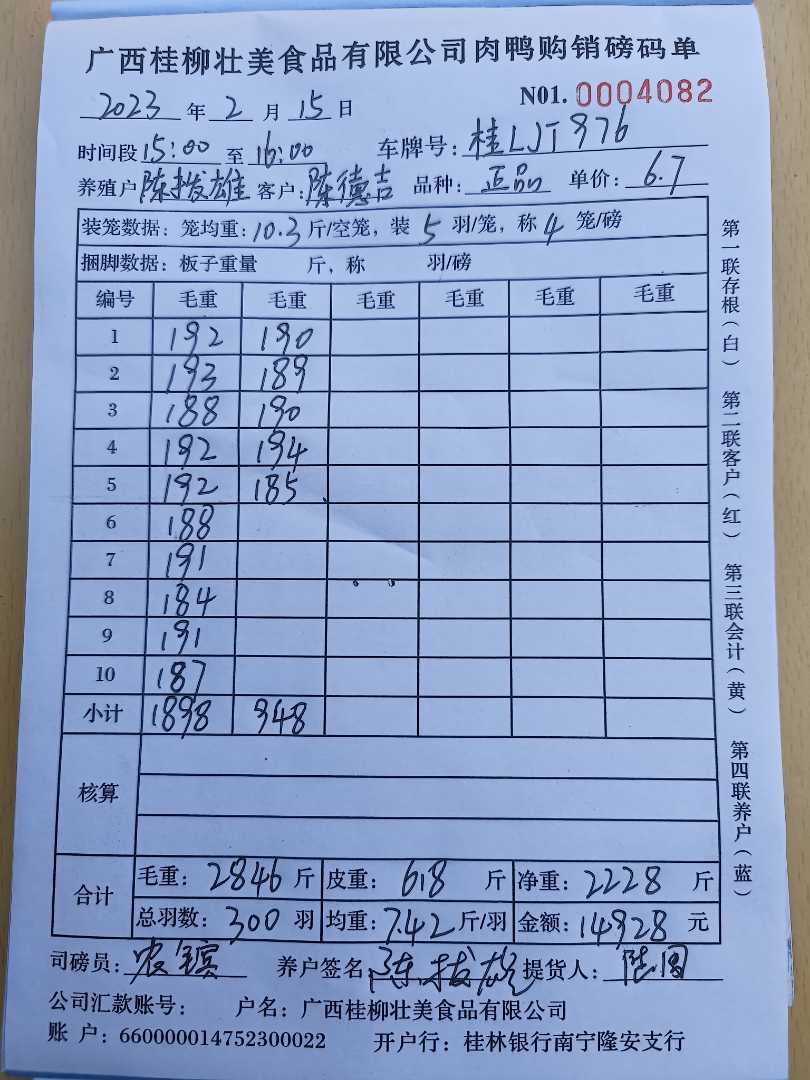 广西桂柳壮美食品有限公司肉鸭购销磅码单
2023 年 2 月 15 日 N01. 0004082
时间段 15:00 至 16:00 车牌号: 桂LJT976
养殖户 陈拨雄 客户: 陈德吉 品种: 正品 单价: 6.7
装笼数据: 笼均重: 10.3 斤/空笼, 装 5 羽/笼, 称 4 笼/磅
捆脚数据: 板子重量 斤, 称 羽/磅
编号 毛重 毛重 毛重 毛重 毛重 毛重
1 192 190
2 193 189
3 188 190
4 192 194
5 192 185
6 188
7 191
8 184
9 191
10 187
小计 1898 948
核算
合计 毛重: 2846 斤 皮重: 618 斤 净重: 2228 斤
总羽数: 300 羽 均重: 7.42 斤/羽 金额: 14928 元
司磅员: 农 养户签名 陈拨雄 提货人:
公司汇款账号: 户名: 广西桂柳壮美食品有限公司
账 户: 660000014752300022 开户行: 桂林银行南宁隆安支行
第一联存根(白) 第二联客户(红) 第三联会计(黄) 第四联养户(蓝)